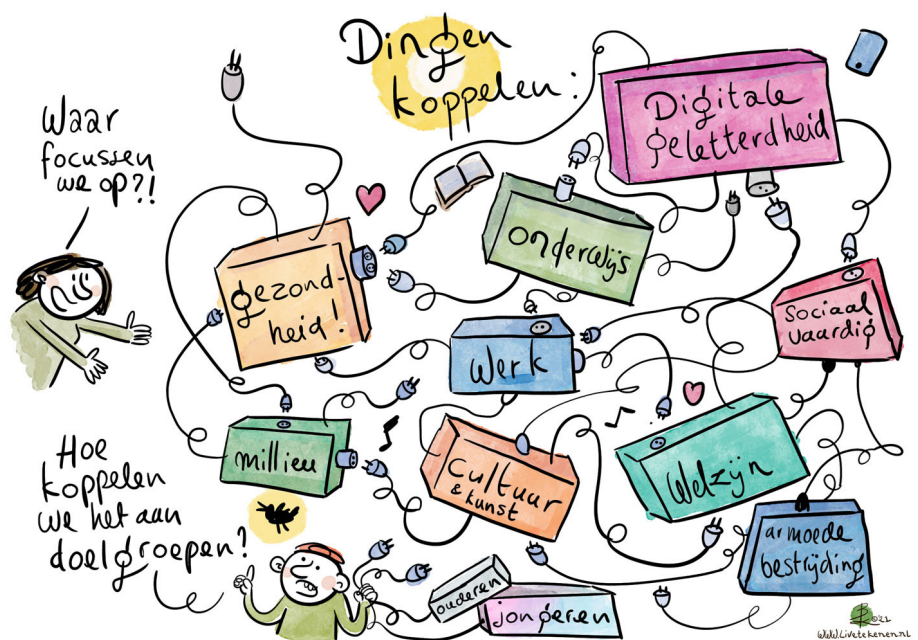 Dingen
koppelen:
Waar
focussen
we op?!
Digitale
geletterdheid
onderwijs
gezond-
heid!
sociaal
vaardig
werk
millieu
Cultuur
& kunst
Welzijn
Hoe
koppelen
we het aan
doelgroepen?
armoede
bestrijding
ouderen
jongeren
2021
www.livetekenen.nl